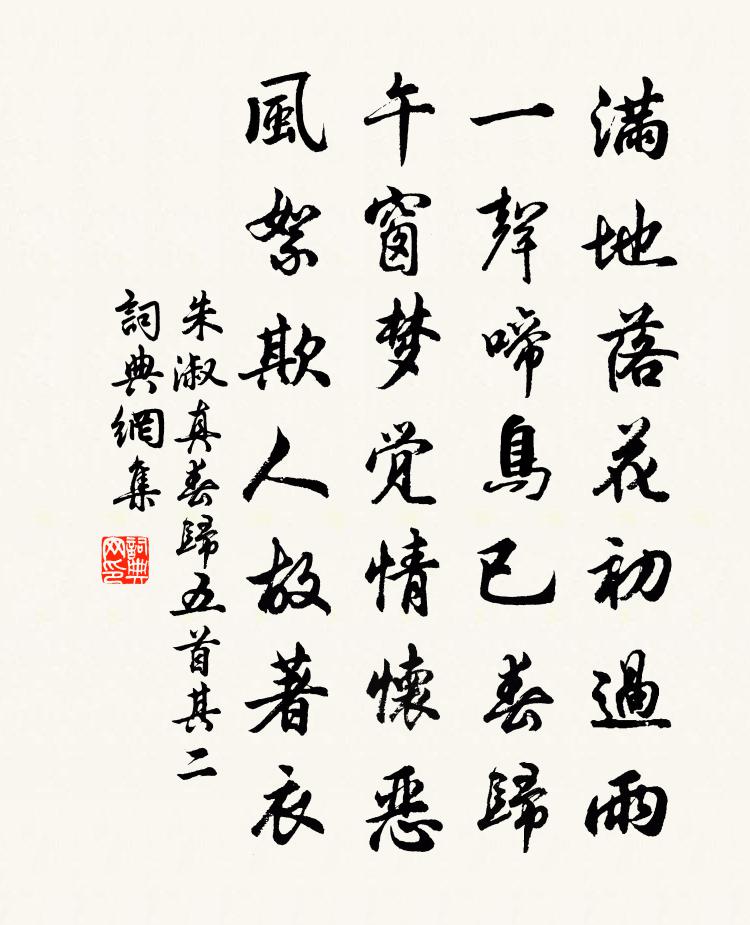 滿地落花初過雨
一聲啼鳥已春歸
午窗梦覚情懷惡
風絮欺人故著衣
朱淑真春歸五首其二
詞典網集
詞典网印